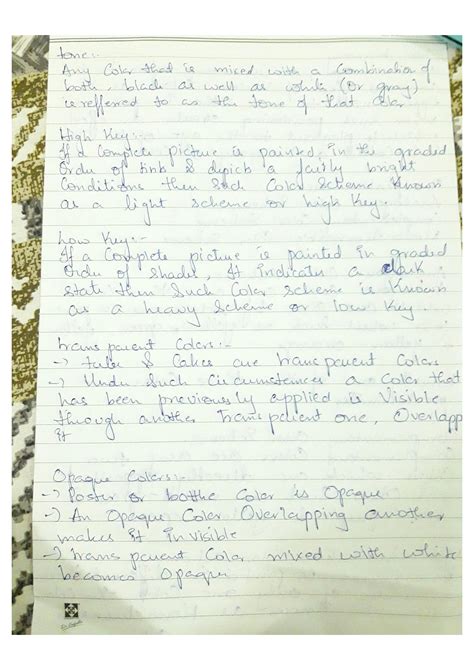 tone:-
Any Color that is mixed with a Combination of
both, black as well as white (or gray)
is reffered to as the tone of that Color
High Key:-
If a Complete picture is painted in the graded
Order of tints & depicts a fairly bright
Conditions then Such Color Scheme Known
as a light scheme or high Key.
Low Key:-
If a Complete picture is painted in graded
Order of Shades, It indicates a dark
state then Such Color Scheme is Known
as a heavy Scheme or low Key
transparent Colors:-
-> tube & Cakes are transparent Colors
-> Under Such Circumstances a Color that
has been previously applied is Visible
through another transparent one, Overlapp
it
Opaque Colors:-
-> Poster or bottle Color is Opaque
-> An Opaque Color Overlapping another
makes it invisible
-> transparent Color mixed with white
becomes Opaque